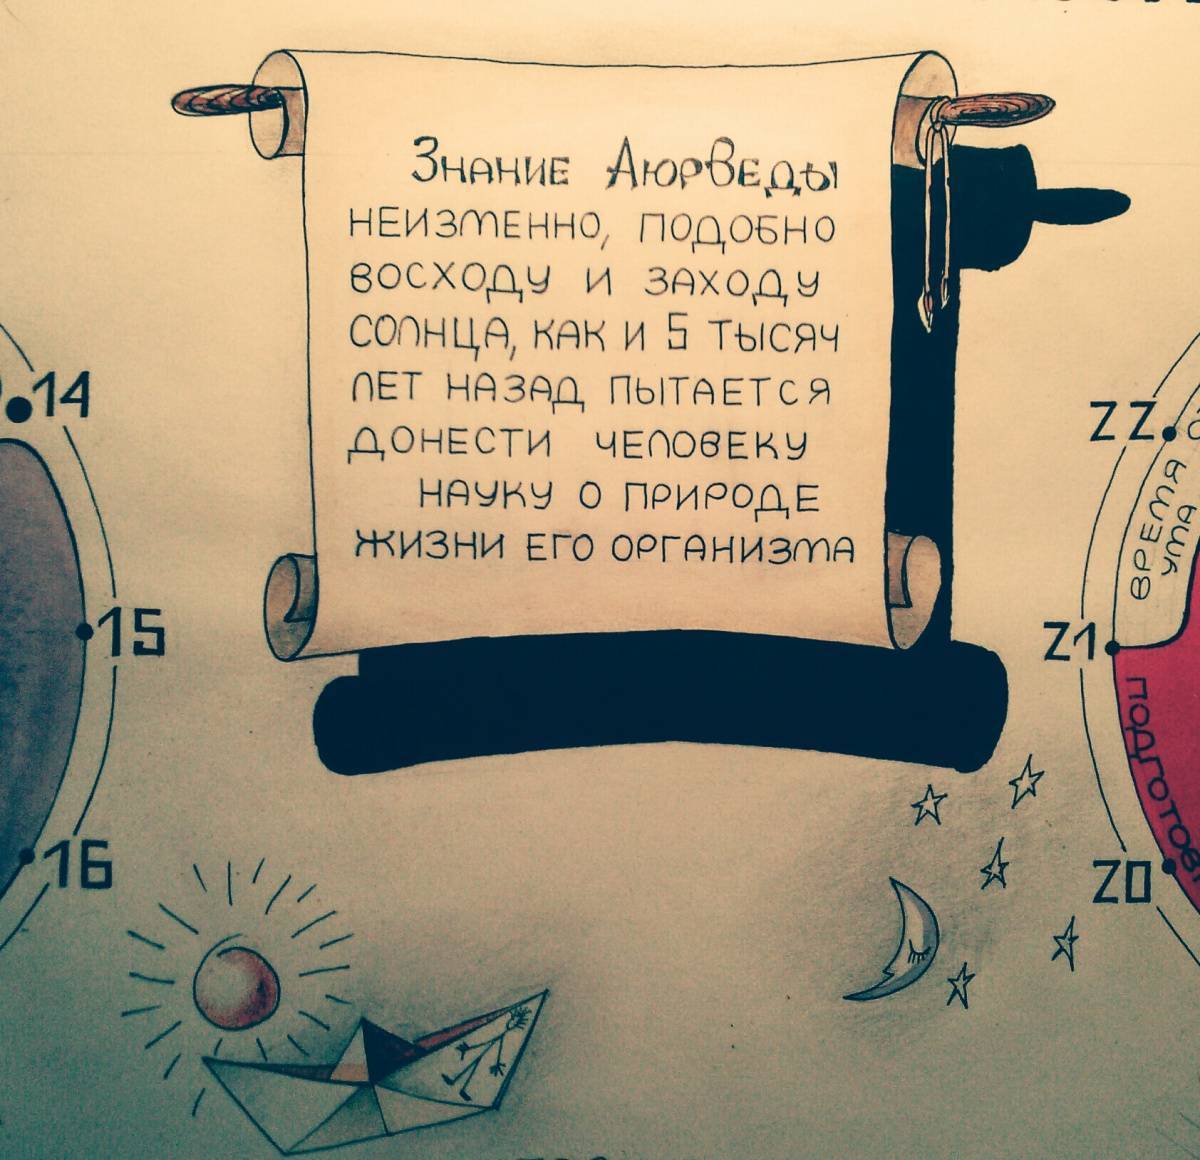 Знание Аюрведы
неизменно, подобно
восходу и заходу
солнца, как и 5 тысяч
лет назад пытается
донести человеку
науку о природе
жизни его организма
14
15
16
22
21
20
Время
ума